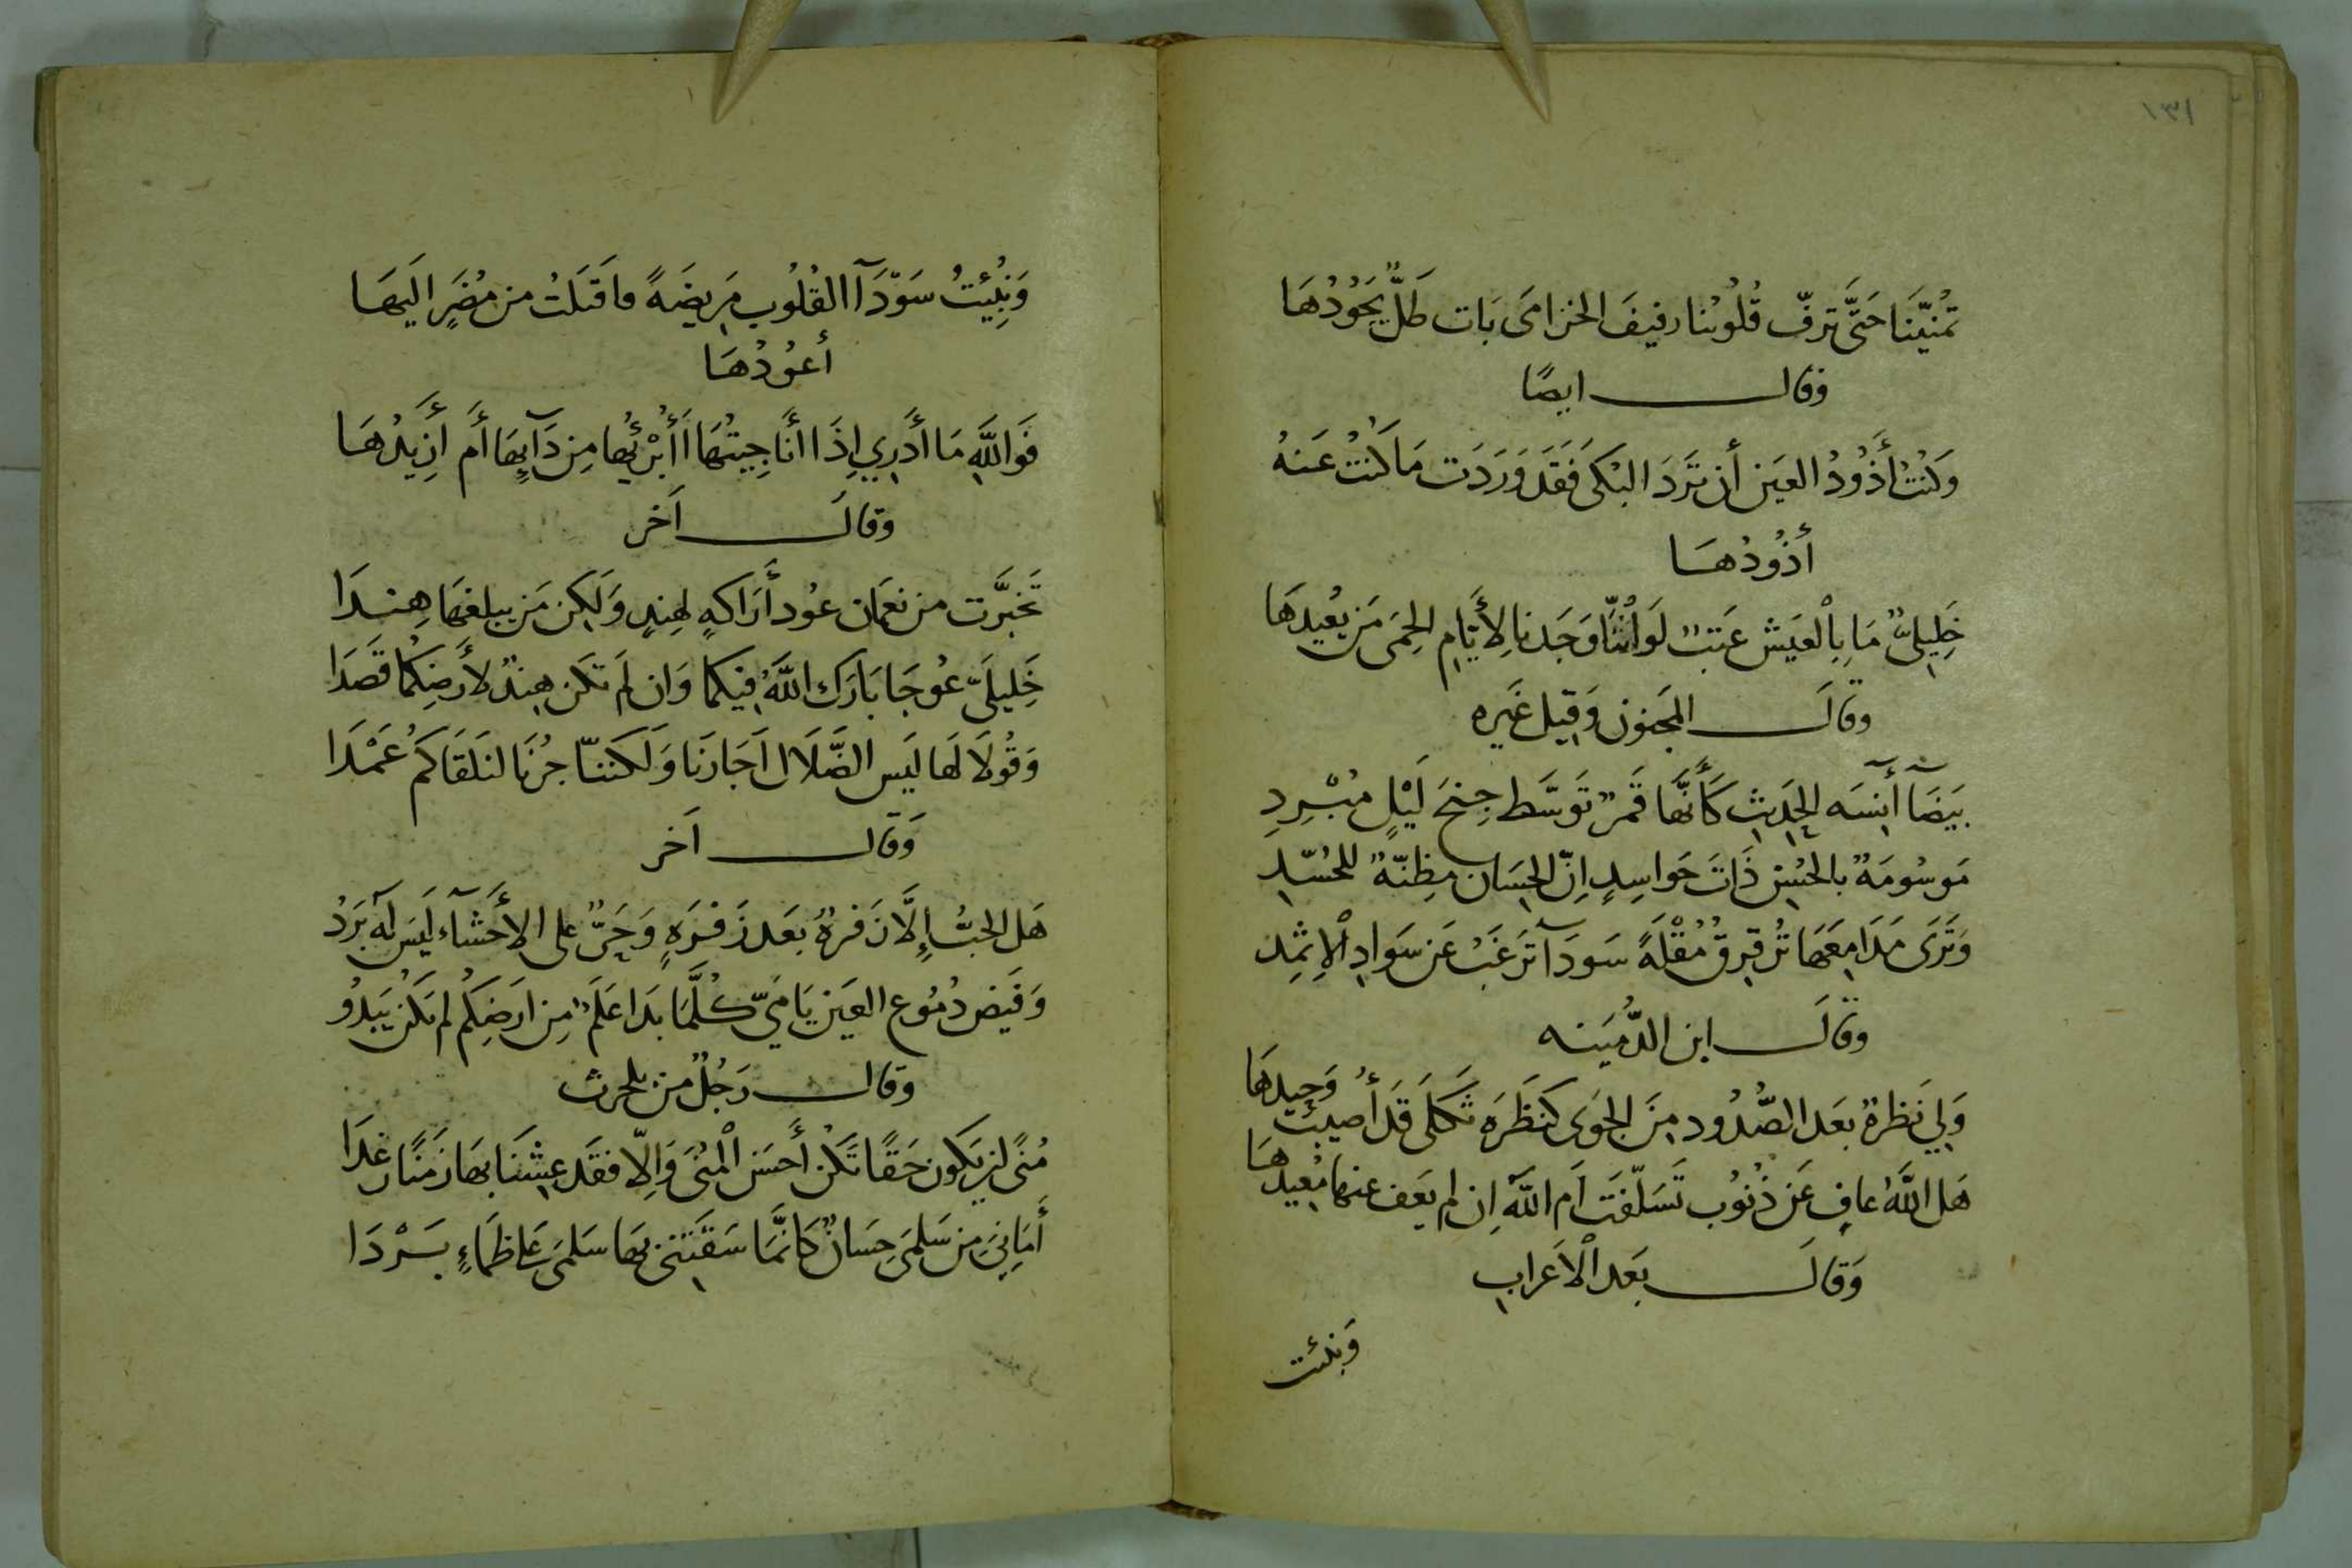 ١٣١
تُمَنِّيْنَا حَتَّى تَرِفّ قُلُوْبُنا رفيفَ الخزامَى بَات طَلٌّ يَجُوْدُهَا
وقال ايضًا
وَكُنْتُ أَذُوْدُ العَيْن أن تَرَدَ البُكَى فَقَد وَرَدَت مَا كُنْتُ عَنهُ
أذُوْدُهَا
خَلِيليَّ مَا بِالْعَيْش عَتبٌ لَو أنّنَّا وَجَدنا لِأَيّامِ الحِمَى مَن يُعِيدهَا
وقالَ المجنون وَقيل غَيره
بَيضَآ آنِسَه الحَدِيثِ كَأَنَّهَا قَمَرٌ تَوَسَّط جِنحَ لَيْلٍ مُبْرِدِ
مَوسُومَةٌ بالحُسْنِ ذَاتَ حَواسِدٍ اِنّ الحِسَان مظِنّةٌ للحُسّدِ
وَتَرَى مَدَامِعَهَا تُرقرِقُ مُقْلَةً سَودَآ تَرغَبُ عَن سَوادِ الْإثمِدِ
وقالَ ابن الدُّمَينه
وَلِي نَظرةٌ بَعد الصُّدُود مِنَ الجَوَى كَنَظَرَه ثَكلَى قَد أُصيبَت وَحيدهَا
هَل اللَّهُ عافٍ عَن ذُنُوبٍ تَسَلّفَت اَم اللَّهُ اِن لم يَعف عنها مُعِيدهَا
وَقالَ بَعد الْاَعراب
وَنبئت
وَنُبِّئتُ سَوّدَآ القُلُوبِ مَرِيضَةً فاَقبَلتُ من مُضَرٍ اليهَا
أعُوْدُهَا
فَوَاللَّهِ مَا أَدرِي اِذَا أَنَا جِيتُهَا أَأُبْرِئُها مِن دَآيِهَا أَم أَزِيدُهَا
وقالَ آخر
تَخَيَّرت من نعمَان عُود أَرَاكهٍ لهِندٍ وَلكِن مَن يبلغهَا هِنْدَا
خَلِيلَيّ عُوجَا بَارَك اللَّهُ فيكمَا وَان لَم تكن هِندٌ لأَرضِكُمَا قَصَدَا
وَقُولَا لَهَا لَيس الضَّلَال اَجَازنَا وَلَكننّا جُزنَا لنَلقَاكَمُ عَمْدَا
وَقال آخر
هَل الحبُّ إِلَّا زَفرةٌ بَعد زَفرَهٍ وَحَرٌّ على الأَحشَآء لَيسَ لَهُ بَردُ
وَفَيضُ دُمُوع العَين يَا مَيّ كُلَّمَا بَدَا عَلَمٌ مِن ارَضِكُم لم يَكُن يَبدُو
وقال رَجُلٌ من بلحرث
مُنًى إن يَكون حَقًا تَكُن أَحسَن الْمُنَى وَاِلّا فقَد عِشنَا بهَا زمَنًا رغدَا
أَمَانِيَ مِن سَلمَى حِسَانٌ كَانَّمَا سَقَتني بهَا سَلمَى عَلى ظَمَاءٍ بَرْدَا